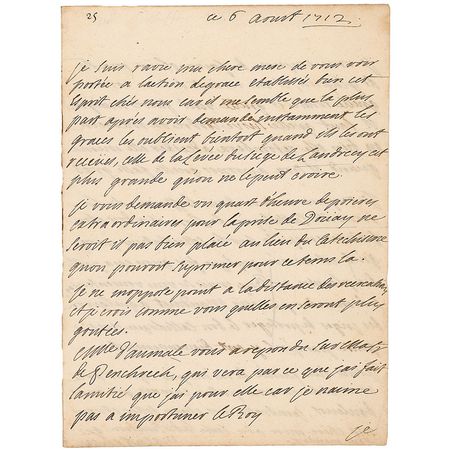 25
ce 6 aoust 1712.
je suis ravie ma chere mere de vous voir
portée a laction degrace etablissés bien cet
esprit chés nous car il me semble que la plus
part aprés avoir demandé instamment les
graces les oublient bientost quand ils les ont
receües, celle de la Levée du siege de Landrecy est
plus grande quon ne le peut croire.
je vous demande un quart d'heure de prieres
extraordinaires pour la prise de Doüay ne
seroit il pas bien placé au lieu du catechisme
quon pouroit suprimer pour ce tems la.
je ne moppose point a la distance des
et je crois comme vous quelles en seront plus
goutées.
Mlle d'aumale vous a repondu sur
de Penchrech, qui vera par ce que jai fait
lamitié que jai pour elle car je naime
pas a importuner le Roy
je